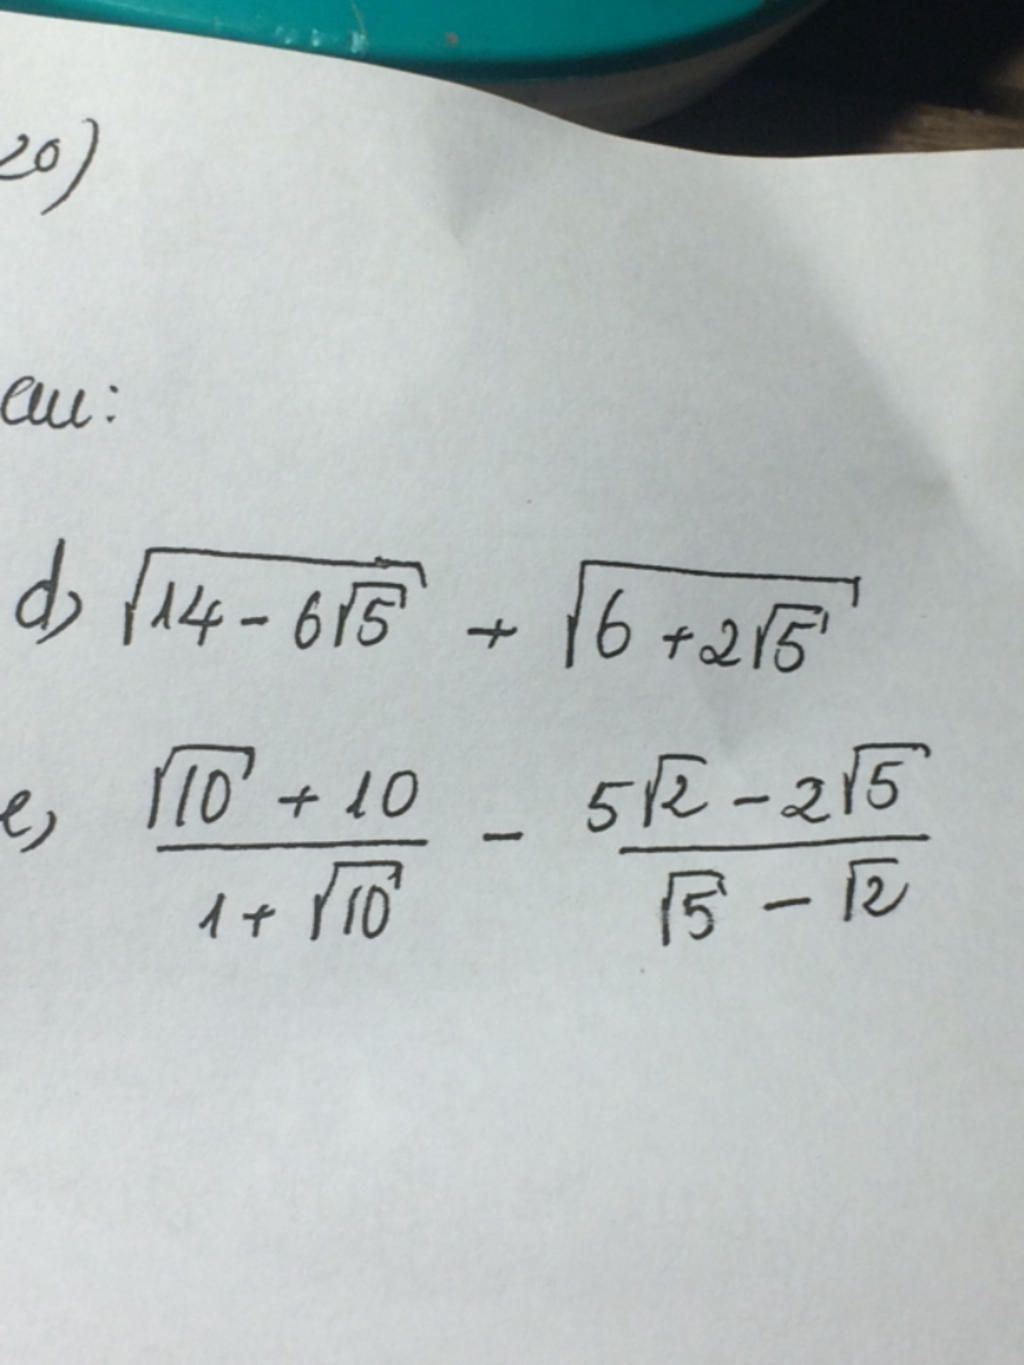 20)
au:
d, √(14 - 6√5) + √(6 + 2√5)
e, (√10 + 10)/(1 + √10) - (5√2 - 2√5)/(√5 - √2)